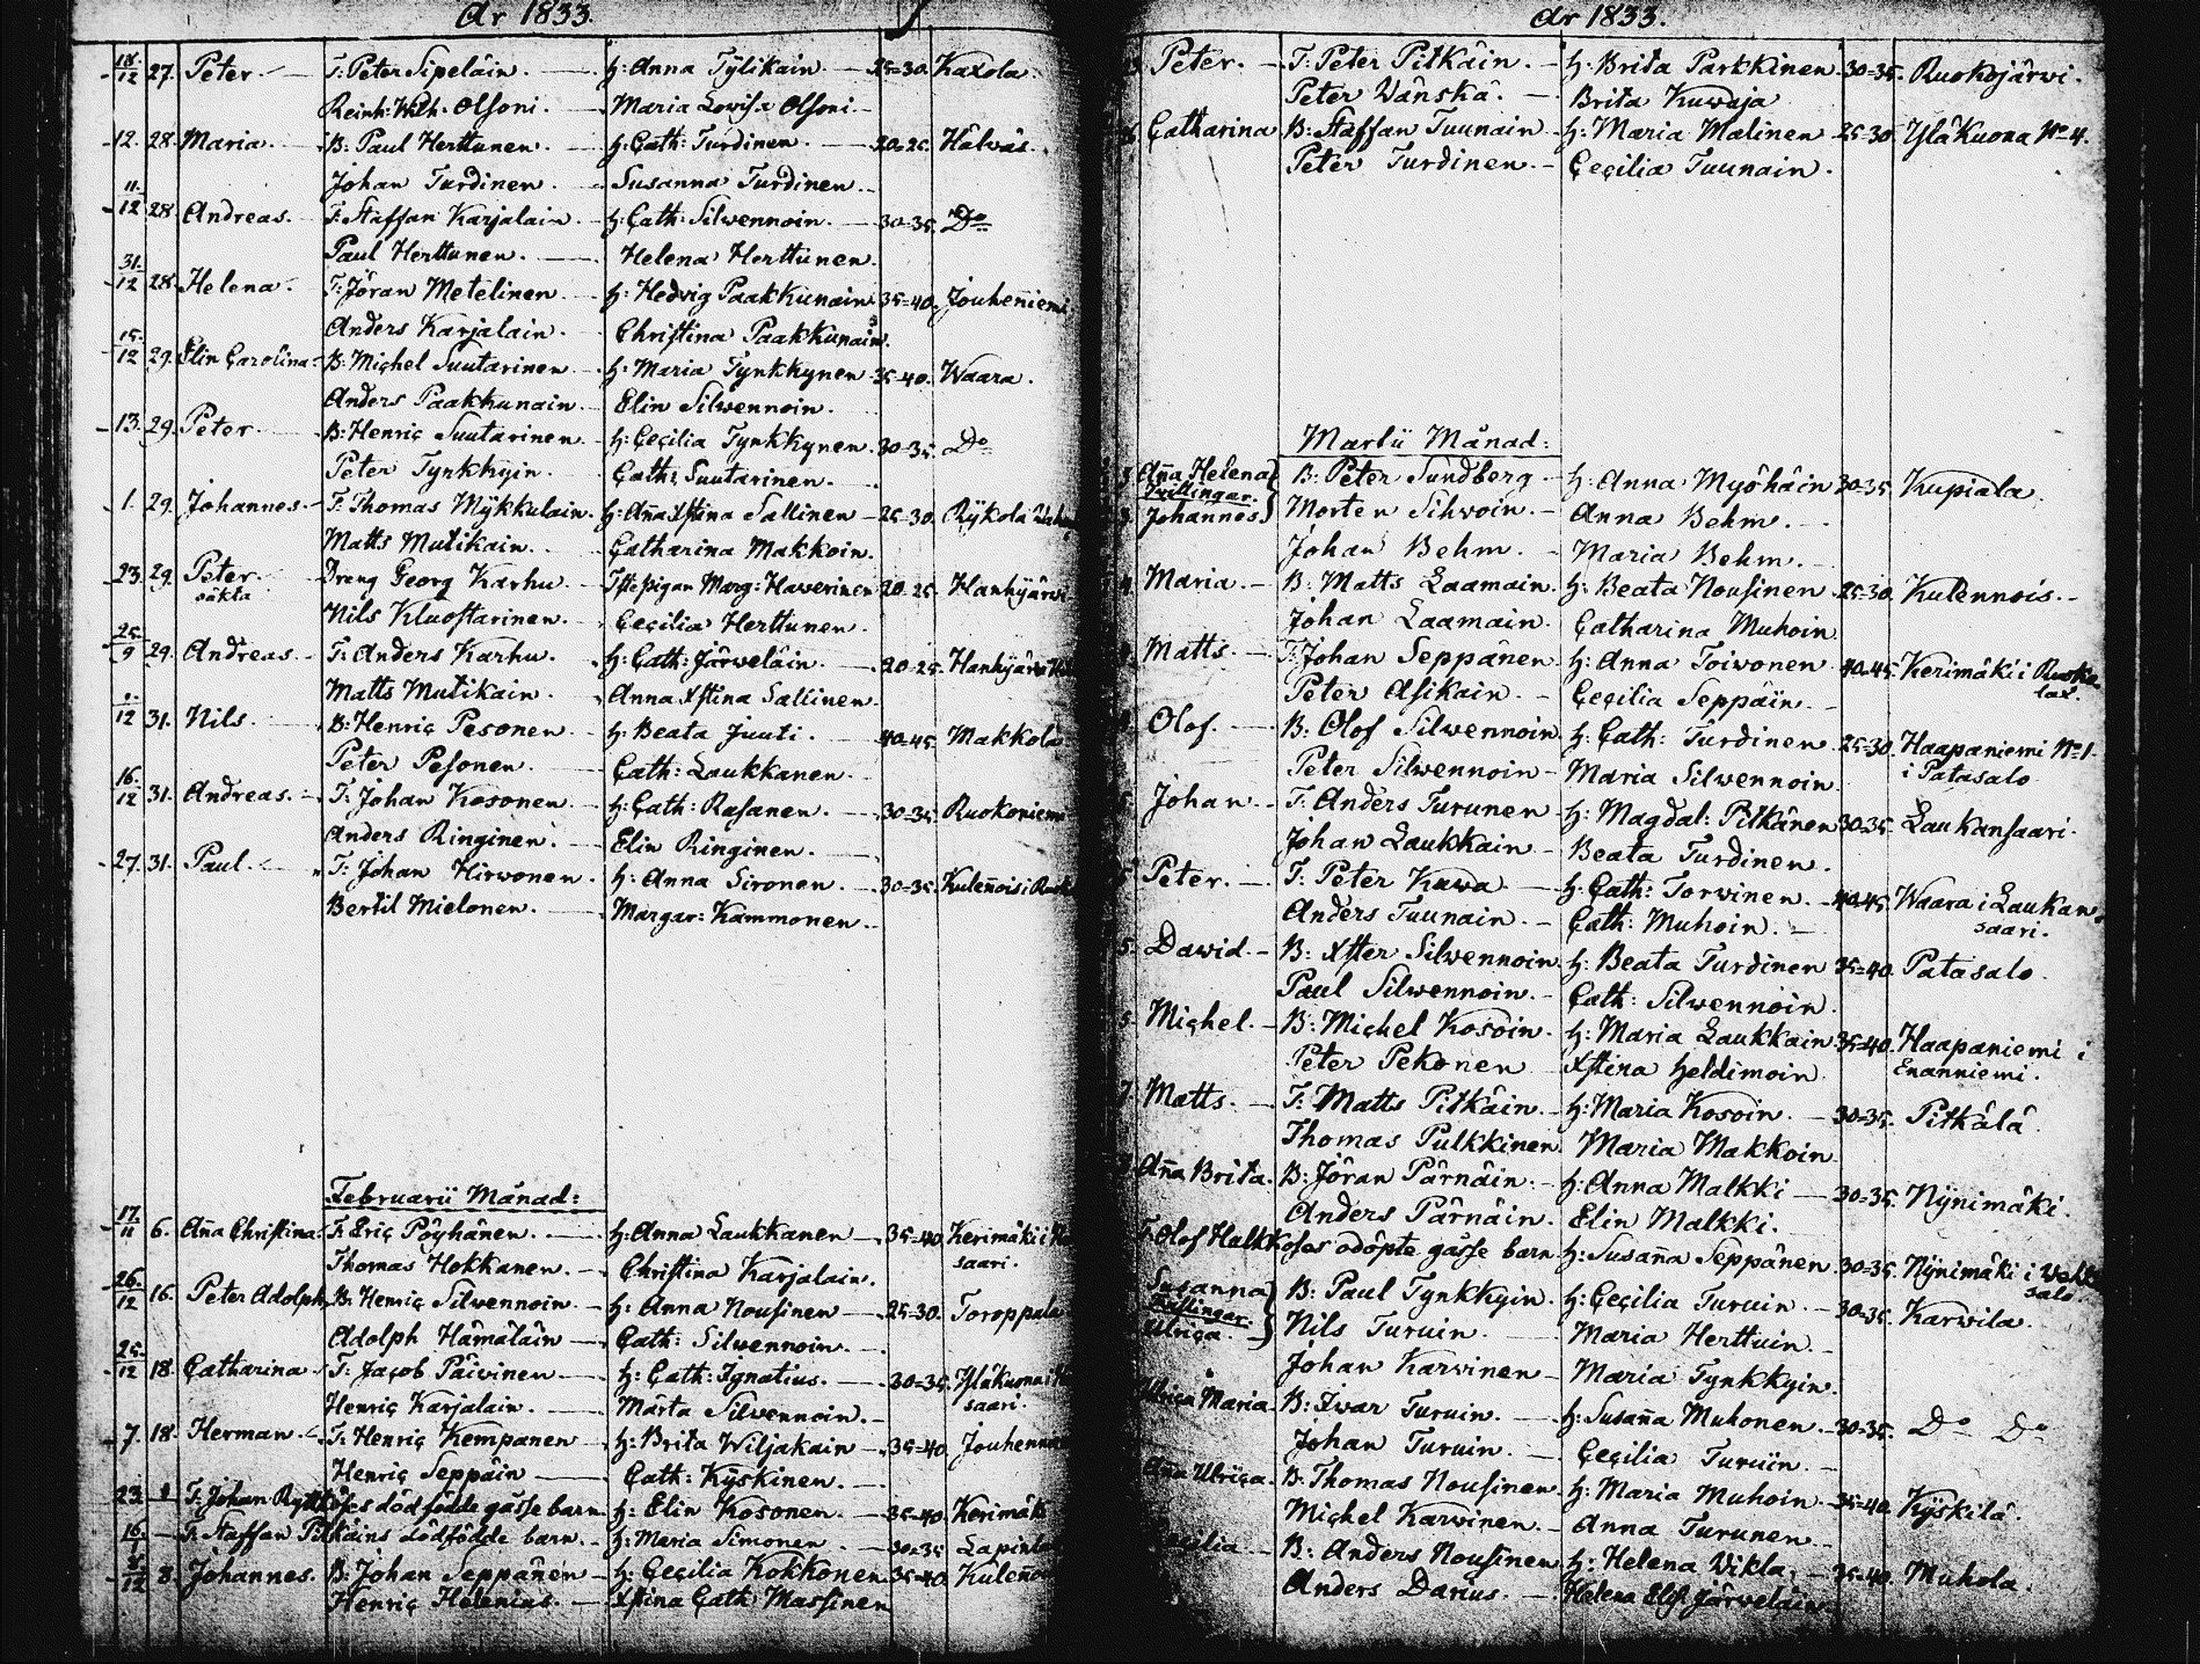 År 1833.
18/12 27. Peter. T: Peter Sipeläin. H: Anna Tylikain 25=30. Kaxola.
Reinh: Wilh. Olsoni. Maria Lovisa Olsoni.
12. 28. Maria. B: Paul Herttunen. H: Cath: Turdinen. 20=25. Hälväs.
Johan Turdinen. Susanna Turdinen.
11/12 28. Andreas. T: Staffan Karjalain. H: Cath: Silwennoin. 30=35. Do
Paul Herttunen. Helena Herttunen.
31/12 28. Helena. T: Jöran Metelinen. H: Hedvig Paakkunain 35=40. Jouhenniemi
Anders Karjalain. Christina Paakkunain.
15/12 29. Elin Carolina. B: Michel Suutarinen. H: Maria Tynkkynen 35=40. Waara.
Anders Paakkunain. Elin Silwennoin.
13. 29. Peter. B: Henric Suutarinen. H: Cecilia Tynkkynen 30=35. Do
Peter Tynkkyin. Cath: Suutarinen.
1. 29. Johannes. T: Thomas Mykkulain. H: Anna Xstina Sallinen 25=30. Rykola
Matts Mutikain. Catharina Makkoin.
23. 29. Peter. Dreng Georg Karhu. Tjst: pigan Marg: Hawerinen 20=25. Hanhijärvi
oäkta Nils Kluostarinen. Cecilia Herttunen.
25/9 29. Andreas. T: Anders Karhu. H: Cath: Järweläin. 20=25. Hanhijärvi
Matts Mutikain. Anna Xstina Sallinen.
1/12 31. Nils. B: Henric Pesonen. H: Beata Juuti. 40=45. Makkola
Peter Pesonen. Cath: Laukkanen.
16/12 31. Andreas. T: Johan Kosonen. H: Cath: Rasanen. 30=35. Ruokoniemi
Anders Ringinen. Elin Ringinen.
27. 31. Paul. T: Johan Hirwonen. H: Anna Sironen. 30=35. Kulennois i
Bertil Mielonen. Margar: Kammonen.
Februarii Månad:
17/11 6. Anna Christina. T: Eric Pöyhänen. H: Anna Laukkanen 35=40. Kerimäki i
Thomas Hokkanen. Christina Karjalain. saari.
26/12 16. Peter Adolph. B: Henric Silwennoin. H: Anna Nousinen 25=30. Toroppala
Adolph Hämäläin Cath: Silwennoin.
25/12 18. Catharina T: Jacob Päivinen H: Cath: Ignatius. 30=35. Yläkuona i
Henric Karjalain. Märta Silwennoin. saari.
7. 18. Herman. T: Henric Kempanen H: Brita Wiljakain 35=40. Jouhenni
Henric Seppäin Cath: Kyskinen.
23. T: Johan dödfödde gåsse barn H: Elin Kosonen. 35=40. Kerimäki
16. T: Staffan Pitkäins dödfödde barn. H: Maria Simonen 30=35. Lapinla
12 8. Johannes. B: Johan Seppänen H: Cecilia Kokkonen 35=40. Kulenno
Henric Helenius. Xstina Cath: Massinen
År 1833.
Peter. T: Peter Pitkäin. H: Brita Parkkinen. 30=35. Ruokojärwi.
Peter Wänskä. Brita Kuwaja
Catharina B: Staffan Tuunain H: Maria Malinen 25=30. Ylä Kuona No 4.
Peter Turdinen. Cecilia Tuunain.
Martii Månad:
Anna Helena B: Peter Sundberg H: Anna Myöhäin 30=35. Kupiala.
Tvillingar.
Johannes Morten Silwoin. Anna Behm.
Johan Behm. Maria Behm.
Maria. B: Matts Laamain. H: Beata Nousinen 25=30. Kulennois.
Johan Laamain. Catharina Muhoin
Matts. T: Johan Seppänen. H: Anna Toiwonen 40=45. Kerimäki i Ruoko
Peter Asikain. Cecilia Seppäin. lax.
Olof. B: Olof Silwennoin H: Cath: Turdinen 25=30. Haapaniemi No 1.
Peter Silwennoin Maria Silwennoin. i Patasalo
5. Johan. T: Anders Turunen H: Magdal: Pitkänen 30=35. Laukansaari.
Johan Laukkain Beata Turdinen.
5. Peter. T: Peter Kuwa. H: Cath: Torwinen. 40=45. Waara i Laukan
Anders Tuunain. Cath: Muhoin. saari.
5. Dawid. B: Xster Silwennoin H: Beata Turdinen 35=40. Patasalo.
Paul Silwennoin. Cath: Silwennoin.
5. Michel. B: Michel Kosoin. H: Maria Laukkain 35=40. Haapaniemi i
Peter Pekonen Xstina Heldimoin. Enanniemi.
7. Matts. T: Matts Pitkäin. H: Maria Kosoin. 30=35. Pitkälä.
Thomas Pulkkinen Maria Makkoin
Anna Brita. B: Jöran Pärnäin. H: Anna Malkki 30=35. Nynimäki.
Anders Pärnäin. Elin Malkki.
T: Olof Halkkoses odöpte gåsse barn H: Susanna Seppänen. 30=35. Nynimäki i
salo.
Susanna B: Paul Tynkkyin. H: Cecilia Turuin. 30=35. Karwila.
Tvillingar.
Ulrica. Nils Turuin. Maria Herttuin.
Johan Karvinen Maria Tynkkyin.
Ulrica Maria. B: Iwar Turuin. H: Susanna Muhonen. 30=35. Do Do
Johan Turuin. Cecilia Turuin.
Anna Ulrica. B: Thomas Nousinen H: Maria Muhoin 35=40. Kyskilä.
Michel Karwinen. Anna Turunen
Cecilia B: Anders Nousinen H: Helena Wikla. 35=40. Muhola.
Anders Darius. Helena Elis. Järweläin